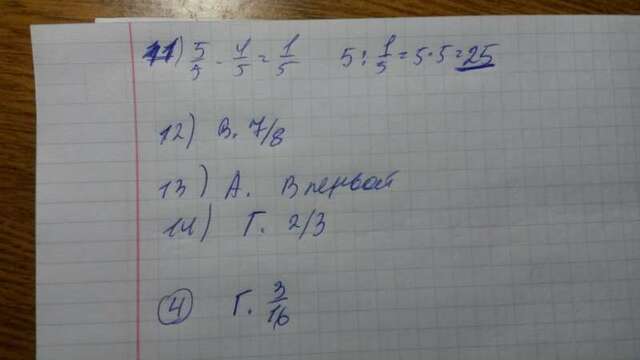 11) 5/5 - 4/5 = 1/5 5 : 1/5 = 5 · 5 = 25
12) В. 7/8
13) А. В первой
14) Г. 2/3
4 Г. 3/16